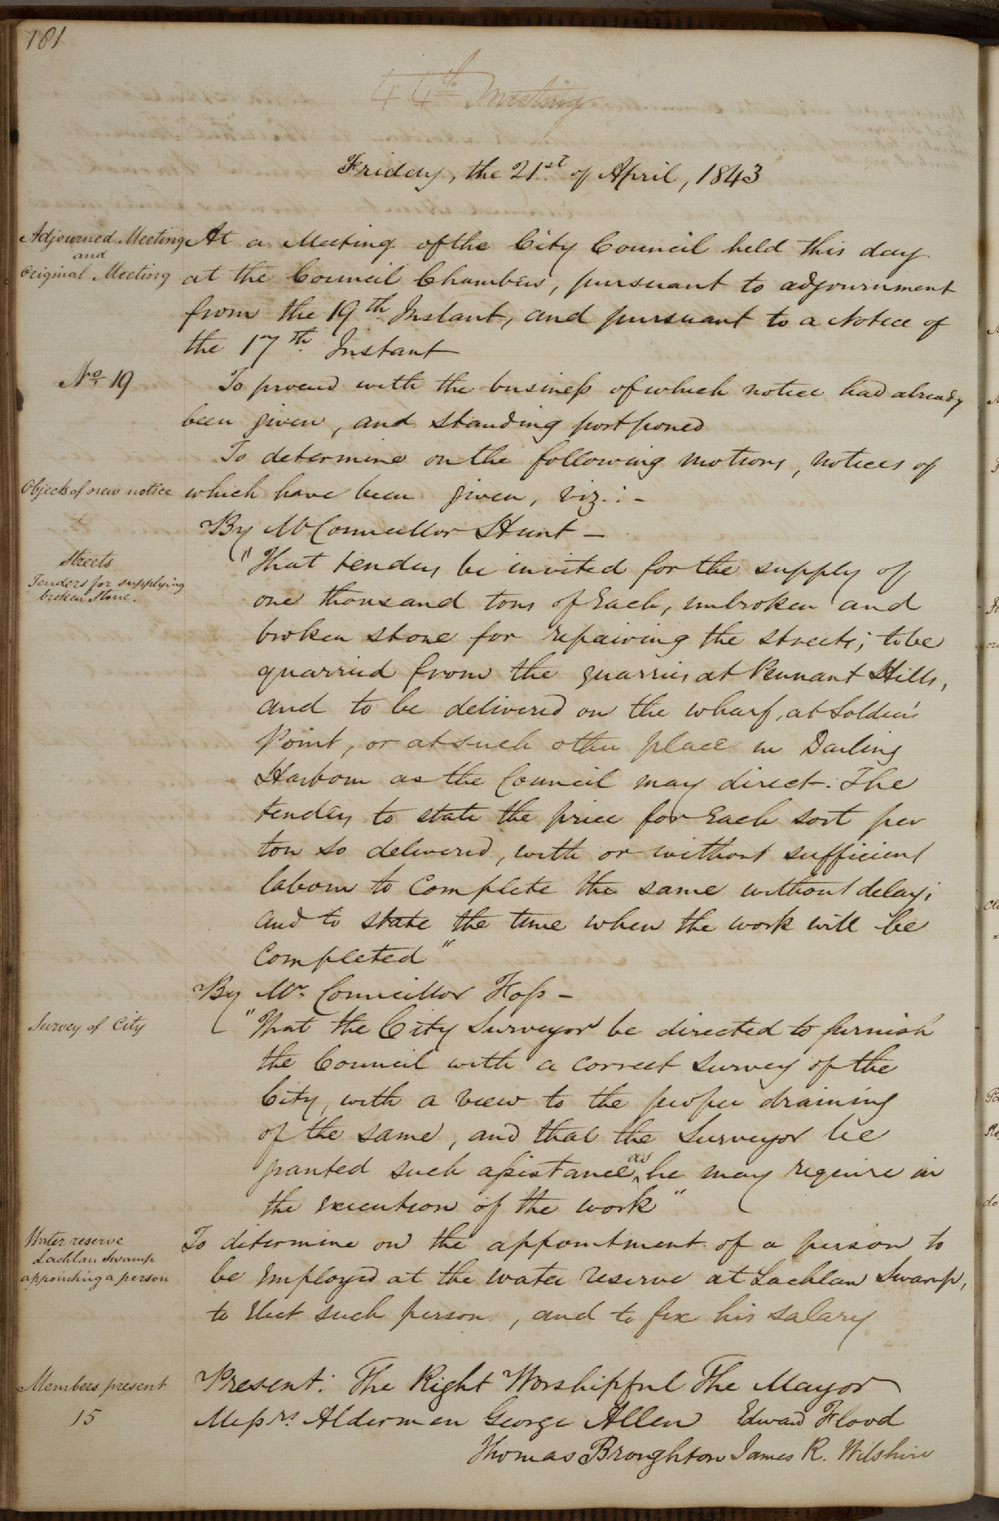 181
44th Meeting
Friday, the 21st of April, 1843
Adjourned Meeting
and
Original Meeting
At a Meeting of the City Council held this day
at the Council Chambers, pursuant to adjournment
from the 19th Instant, and pursuant to a Notice of
the 17th Instant
No. 19
To proceed with the business of which notice had already
been given, and standing postponed
To determine on the following motions, notices of
Objects of new notice
which have been given, viz:-
By Mr Councillor Hunt -
Streets
Tenders for supplying
broken stone.
"That tenders be invited for the supply of
one thousand tons of each, unbroken and
broken stone for repairing the streets; to be
quarried from the quarries at Pennant Hills,
and to be delivered on the wharf, at Soldier's
Point, or at such other place in Darling
Harbour as the Council may direct. The
tenders to state the price for each sort per
ton so delivered, with or without sufficient
labour to complete the same without delay;
and to state the time when the work will be
completed"
By Mr. Councillor Foss -
Survey of City
"That the City Surveyor be directed to furnish
the Council with a correct survey of the
City, with a view to the proper draining
of the same, and that the Surveyor be
granted such assistance as he may require in
the execution of the work"
Water reserve
Lachlan Swamp
appointing a person
To determine on the appointment of a person to
be employed at the water reserve at Lachlan Swamp,
to elect such person, and to fix his salary
Members present
15
Present: The Right Worshipful The Mayor
Messrs. Aldermen George Allen Edward Flood
Thomas Broughton James R. Wilshire